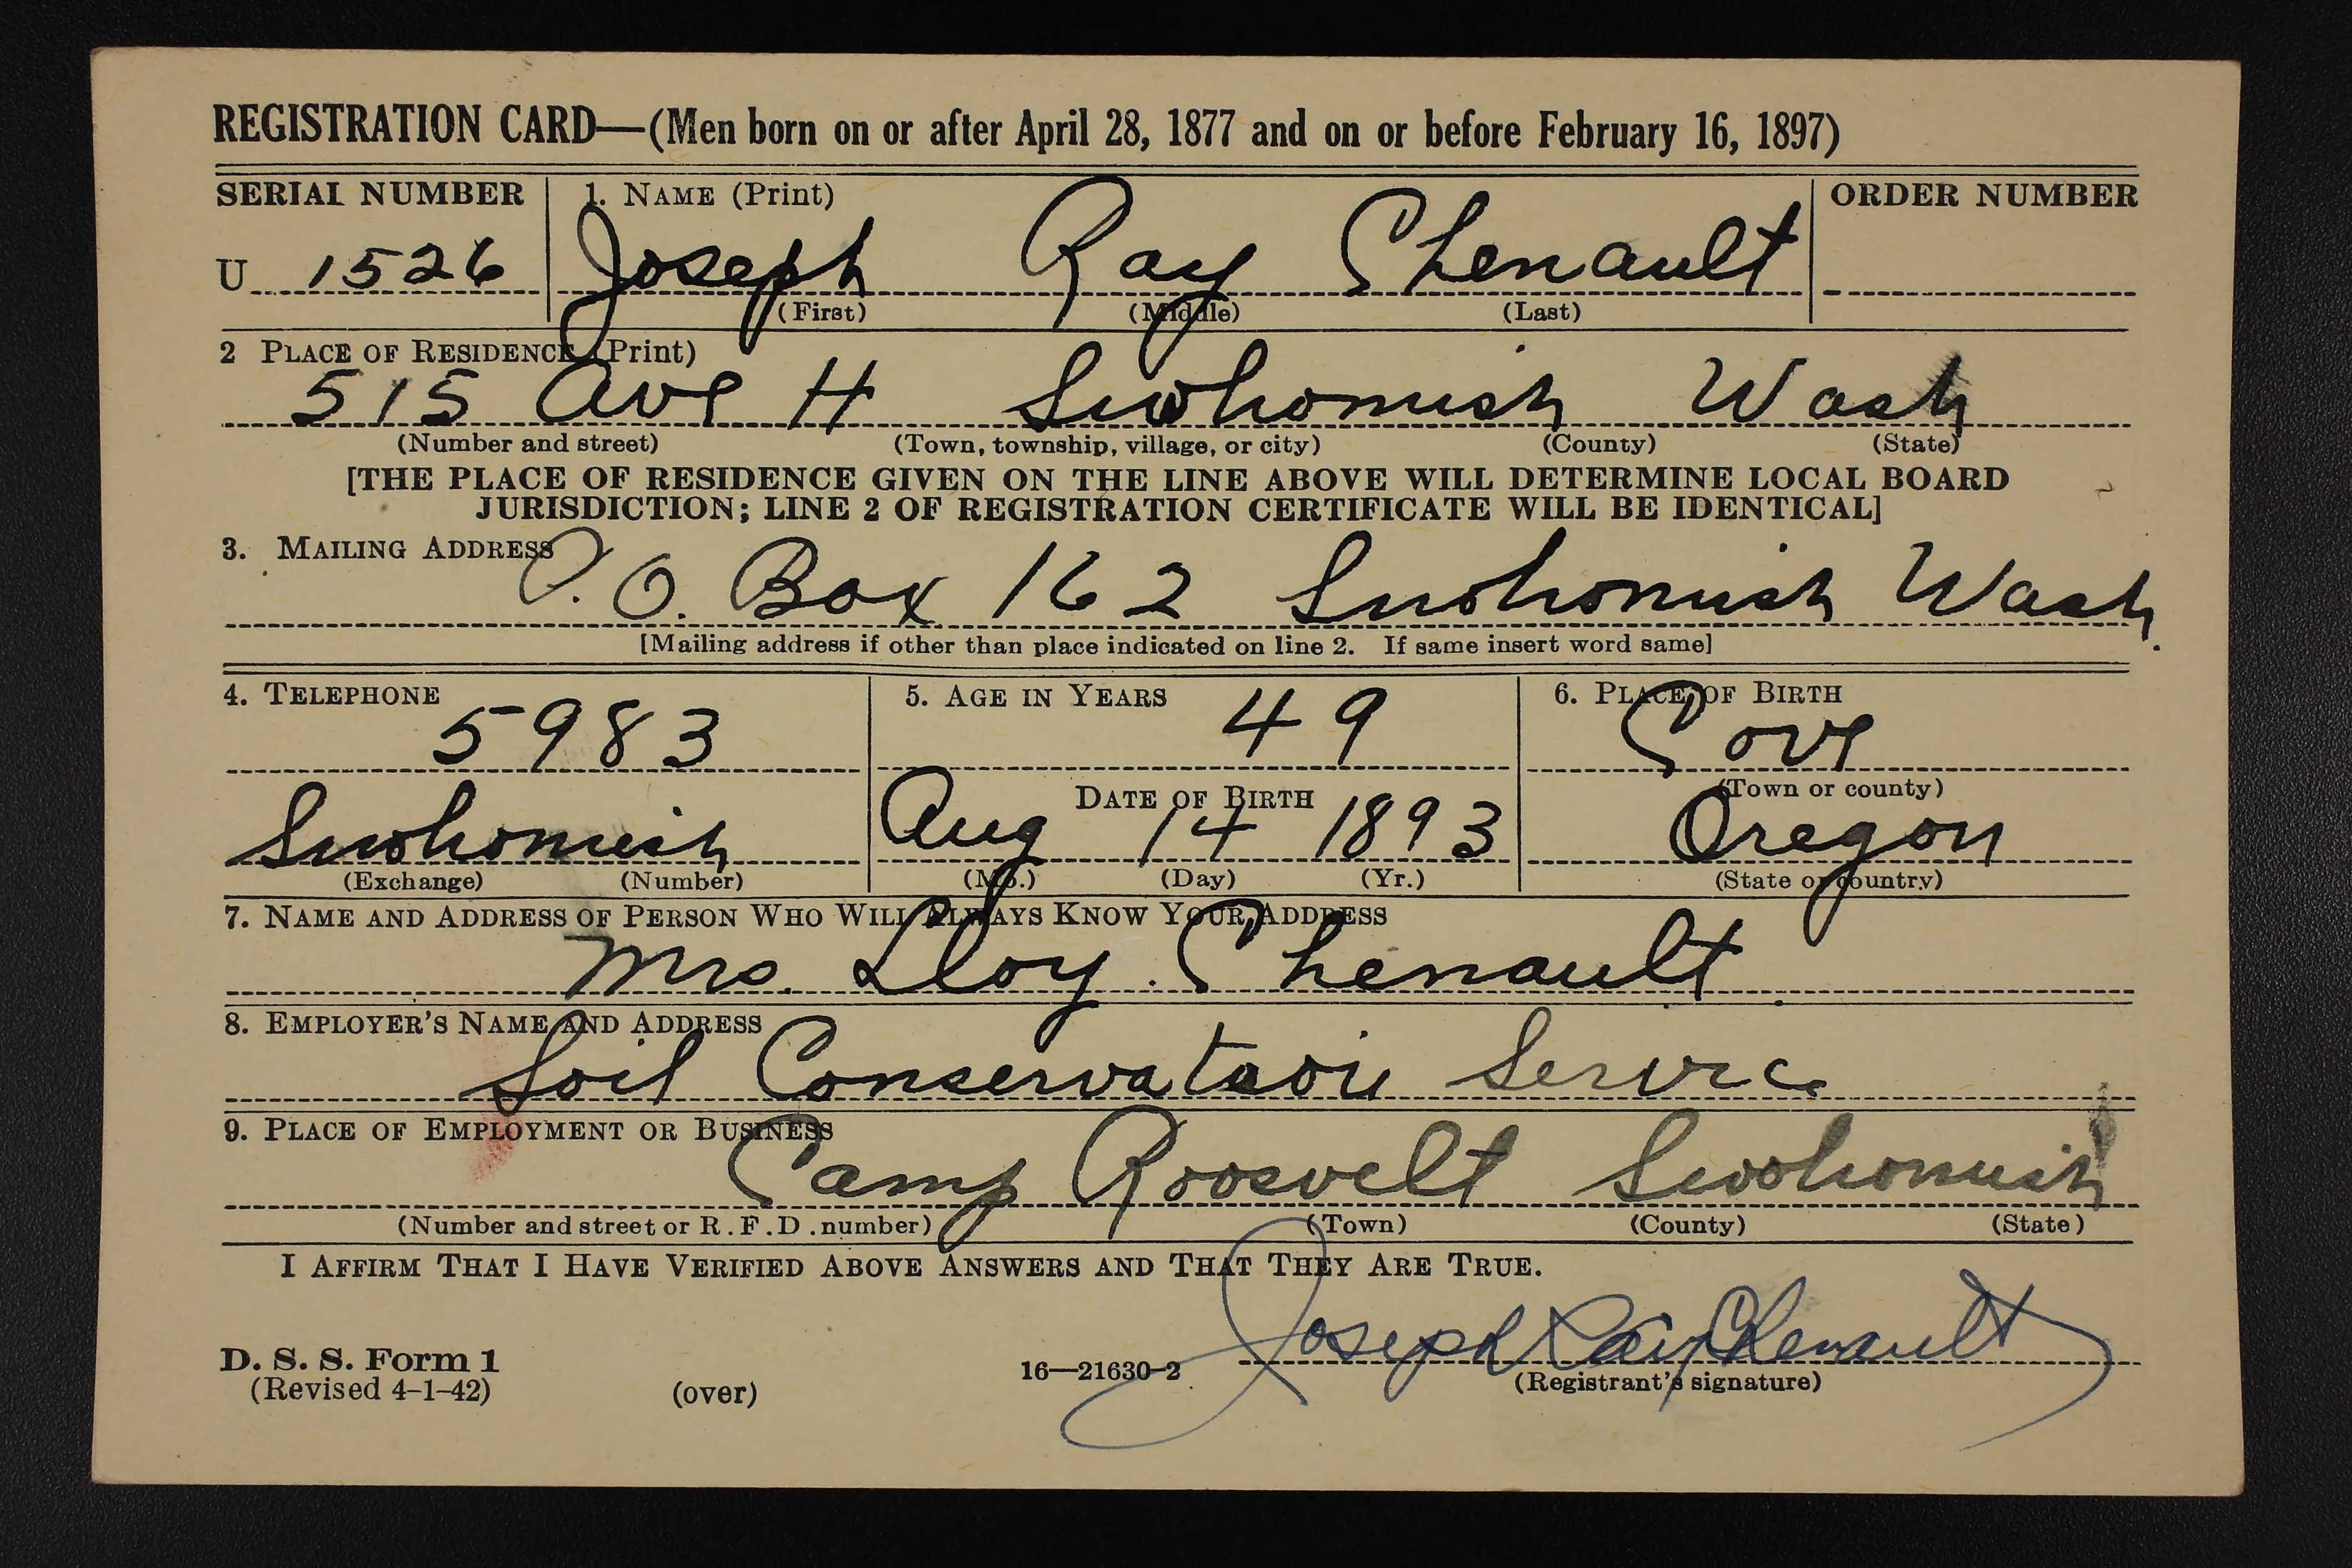 REGISTRATION CARD—(Men born on or after April 28, 1877 and on or before February 16, 1897)
SERIAL NUMBER 1. NAME (Print) ORDER NUMBER
U 1526 Joseph Ray Chenault
(First) (Middle) (Last)
2 PLACE OF RESIDENCE (Print)
515 Ave H Snohomish Wash
(Number and street) (Town, township, village, or city) (County) (State)
[THE PLACE OF RESIDENCE GIVEN ON THE LINE ABOVE WILL DETERMINE LOCAL BOARD
JURISDICTION; LINE 2 OF REGISTRATION CERTIFICATE WILL BE IDENTICAL]
3. MAILING ADDRESS
P.O. Box 162 Snohomish Wash.
[Mailing address if other than place indicated on line 2. If same insert word same]
4. TELEPHONE 5. AGE IN YEARS 6. PLACE OF BIRTH
5983 49 Cove
DATE OF BIRTH (Town or county)
Snohomish Aug 14 1893 Oregon
(Exchange) (Number) (Mo.) (Day) (Yr.) (State or country)
7. NAME AND ADDRESS OF PERSON WHO WILL ALWAYS KNOW YOUR ADDRESS
Mrs. Lloy. Chenault.
8. EMPLOYER'S NAME AND ADDRESS
Soil Conservation Service
9. PLACE OF EMPLOYMENT OR BUSINESS
Camp Roosvelt Snohomish
(Number and street or R.F.D. number) (Town) (County) (State)
I AFFIRM THAT I HAVE VERIFIED ABOVE ANSWERS AND THAT THEY ARE TRUE.
Joseph Ray Chenault
D. S. S. Form 1
(Revised 4-1-42) (over) 16—21630-2 (Registrant's signature)